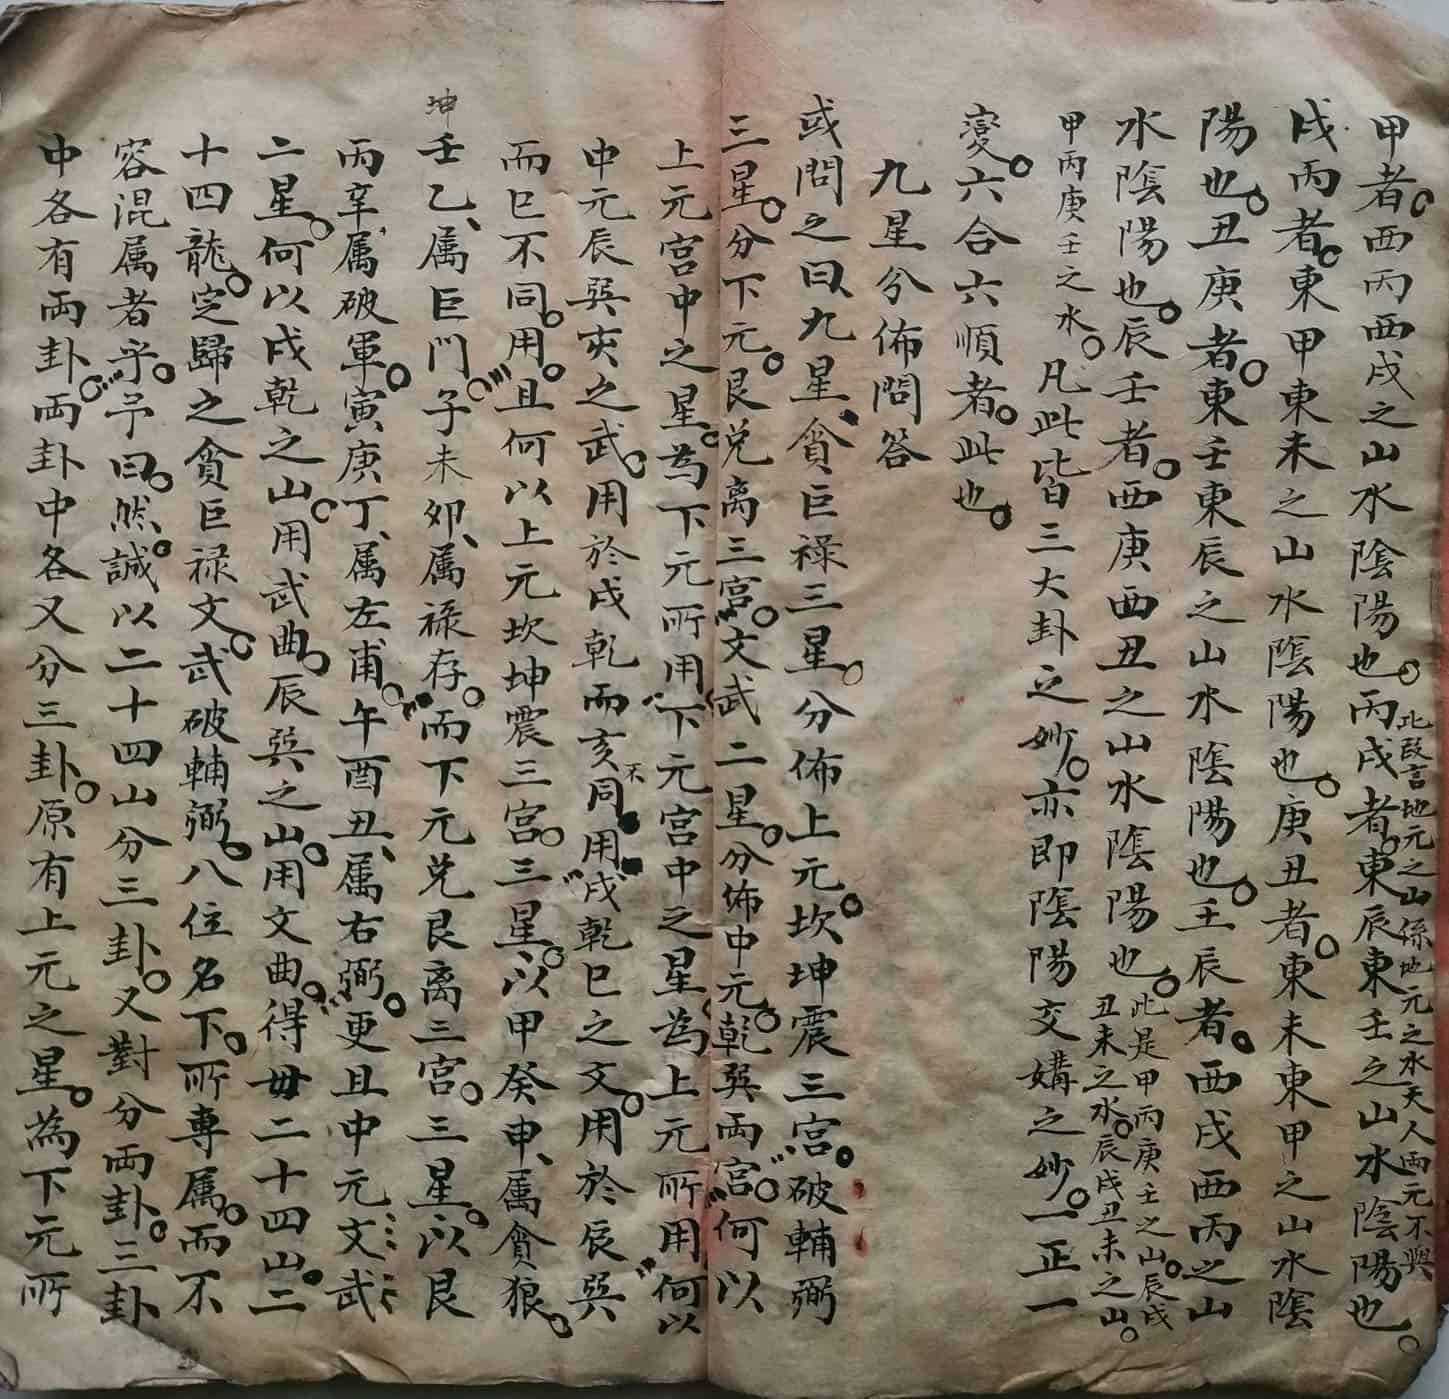 甲者。西丙西戌之山水陰陽也。此段言地元之山係地元之水天人兩元不與丙戌者。東辰東壬之山水陰陽也。
戌丙者。東甲東未之山水陰陽也。庚丑者。東未東甲之山水陰
陽也。丑庚者。東壬東辰之山水陰陽也。壬辰者。西戌西丙之山
水陰陽也。辰壬者。西庚西丑之山水陰陽也。此是甲丙庚壬之山。辰戌丑未之水。辰戌丑未之山。
甲丙庚壬之水。凡此皆三大卦之妙。亦即陰陽交媾之妙。一正一
變。六合六順者。此也。
九星分佈問答
或問之曰、九星、貪巨祿三星。分佈上元。坎坤震三宮。破輔弼
三星。分下元。艮兌离三宮。文武二星。分佈中元。乾巽兩宮。何以
上元宮中之星。為下元所用。下元宮中之星為上元所用。何以
中元辰巽亥之武。用於戌乾而亥不同用。戌乾巳之文。用於辰巽
而巳不同。用。且何以上元坎坤震三宮。三星。以甲癸申、属貪狼。
坤壬乙、属巨門。子未卯、属祿存。而下元兌艮离三宮。三星。以艮
丙辛、属破軍。寅庚丁、属左甫。午酉丑、属右弼。更且中元文武
二星。何以戌乾之山。用武曲。辰巽之山。用文曲。得毋二十四山。二
十四龍。定歸之貪巨祿文。武破輔弼。八位名下。所專属。而不
容混属者乎。予曰。然。誠以二十四山分三卦。又對分兩卦。三卦
中各有兩卦。兩卦中各又分三卦。原有上元之星。為下元所